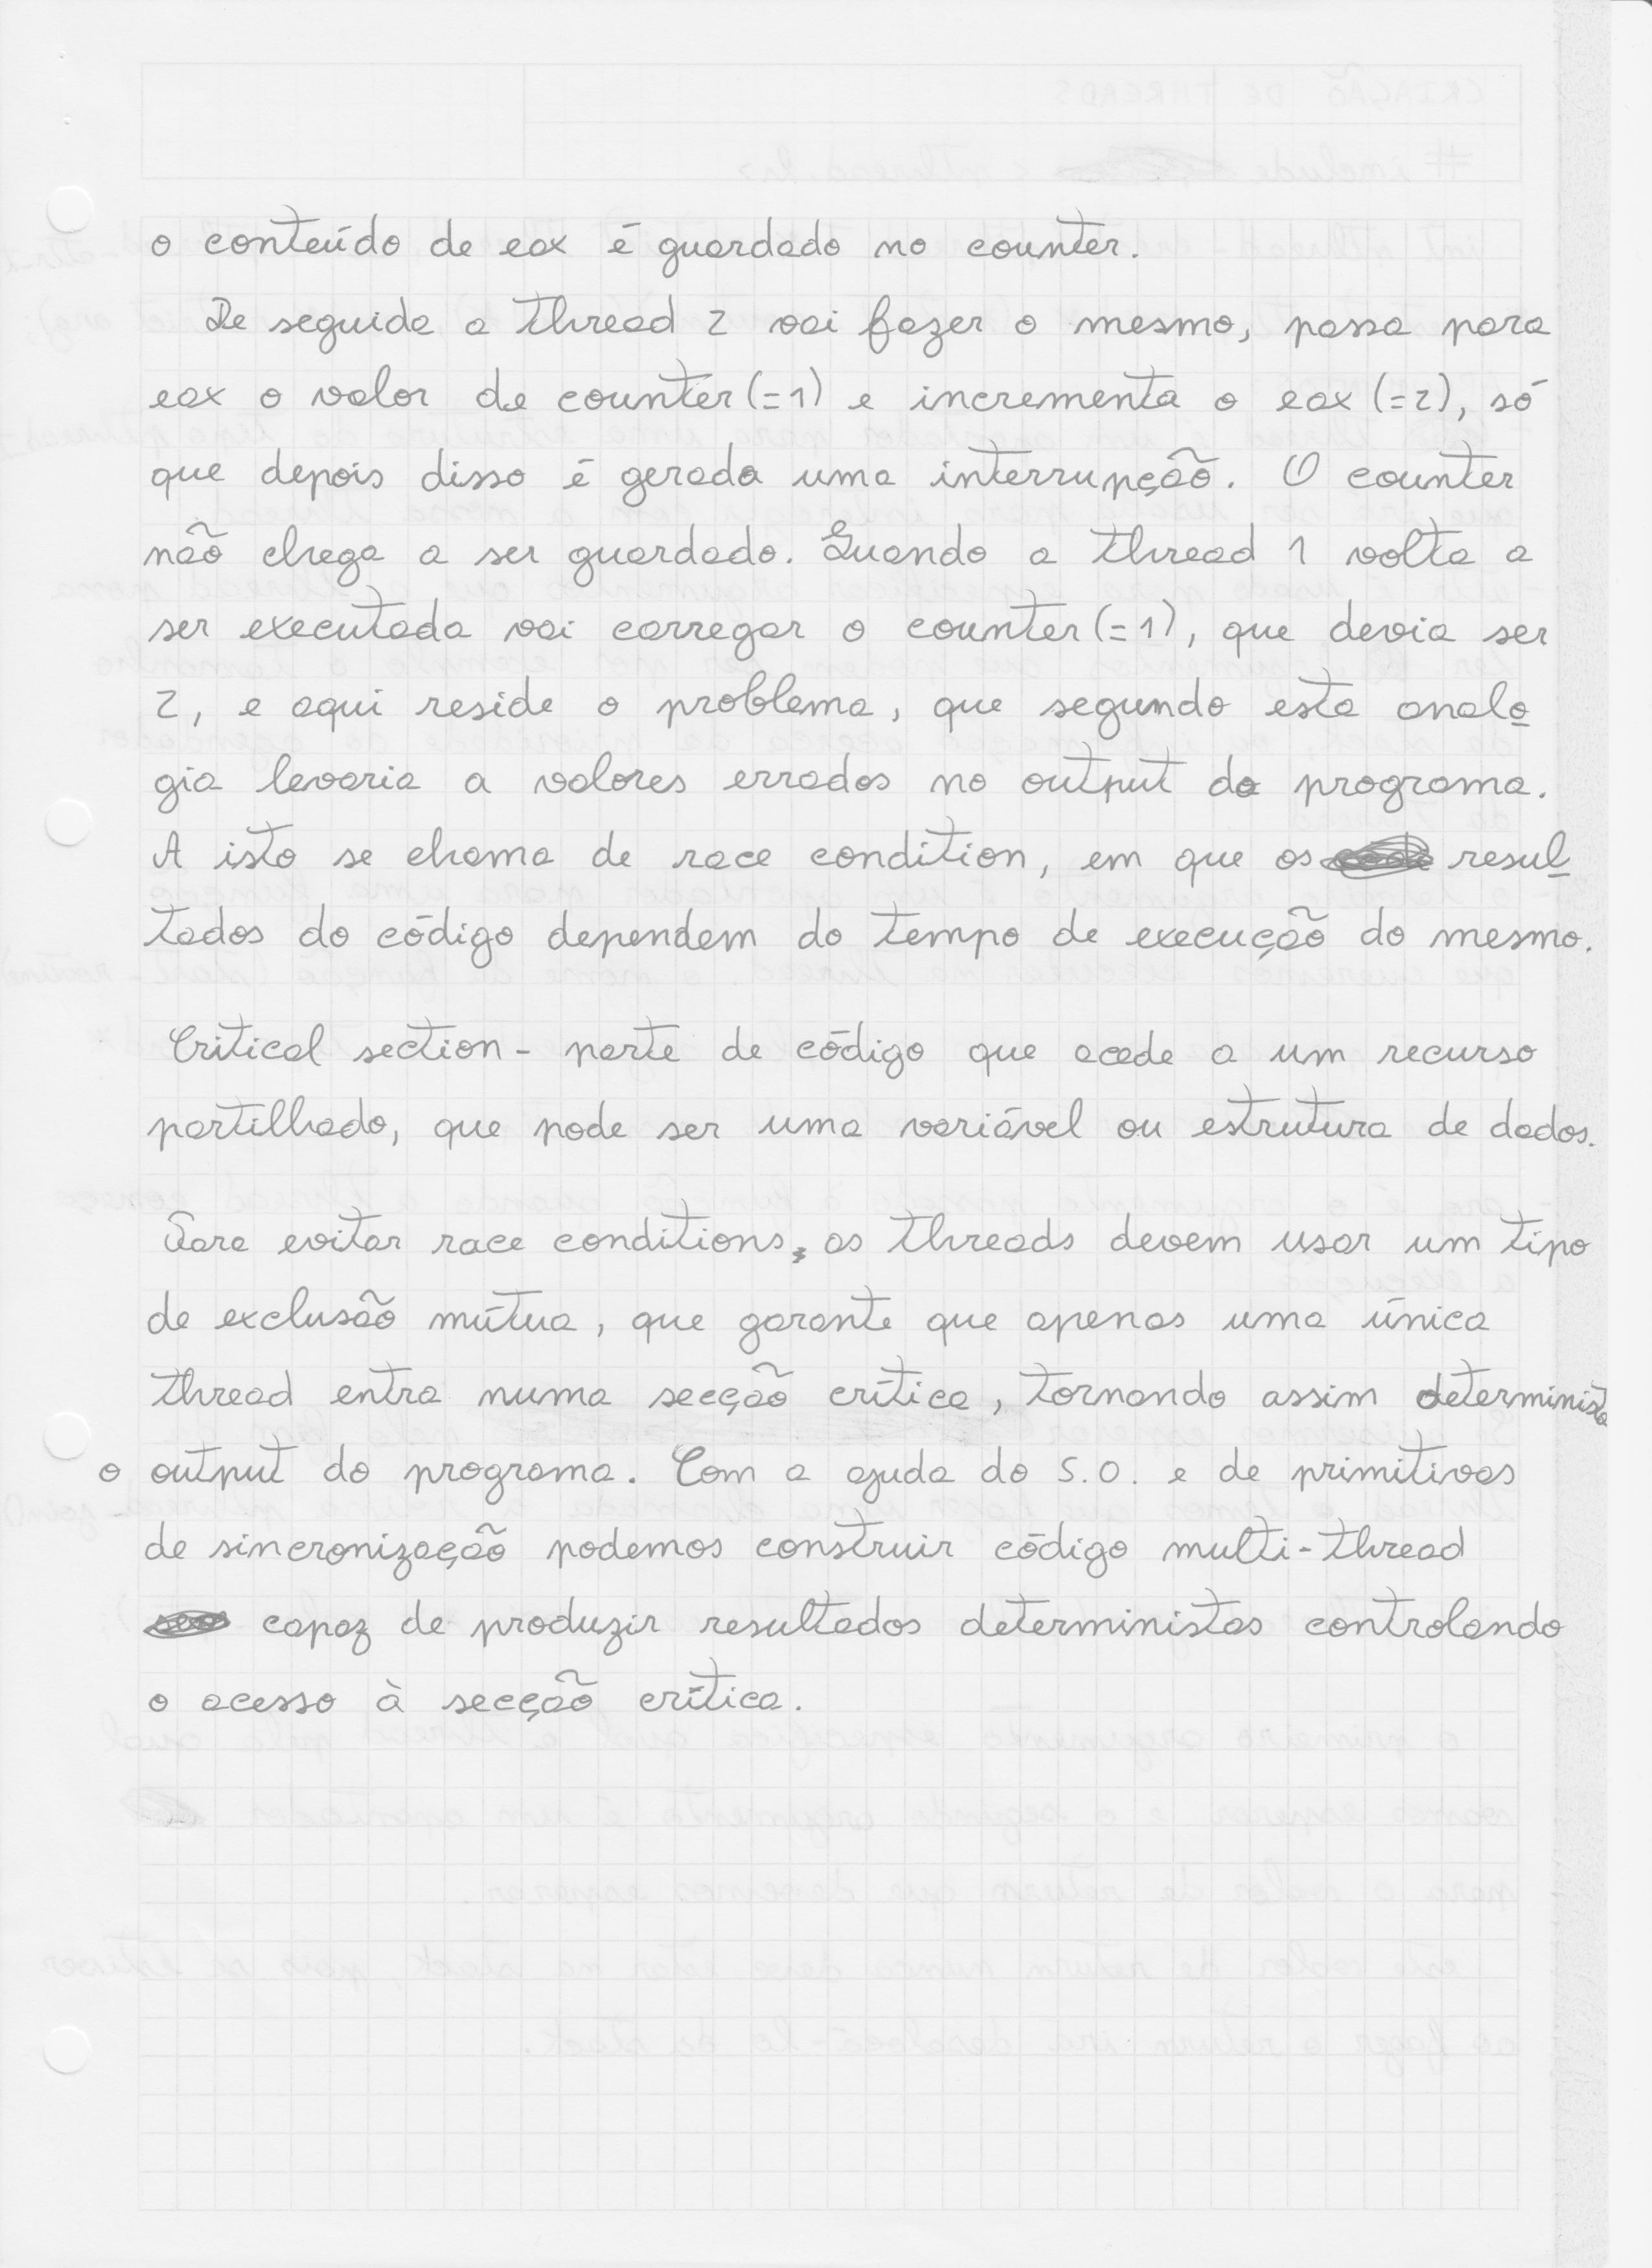 o conteúdo de eax é guardado no counter.
De seguida a thread 2 vai fazer o mesmo, passa para
eax o valor de counter (=1) e incrementa o eax (=2), só
que depois disso é gerada uma interrupção. O counter
não chega a ser guardado. Quando a thread 1 volta a
ser executada vai carregar o counter (=1), que devia ser
2, e aqui reside o problema, que segundo esta analo
gia levaria a valores errados no output do programa.
A isto se chama de race condition, em que os resul
tados do código dependem do tempo de execução do mesmo.
Critical section - parte de código que acede a um recurso
partilhado, que pode ser uma variável ou estrutura de dados.
Para evitar race conditions, as threads devem usar um tipo
de exclusão mútua, que garante que apenas uma única
thread entra numa secção crítica, tornando assim determinista
o output do programa. Com a ajuda do S.O. e de primitivas
de sincronização podemos construir código multi-thread
capaz de produzir resultados deterministas controlando
o acesso à secção crítica.